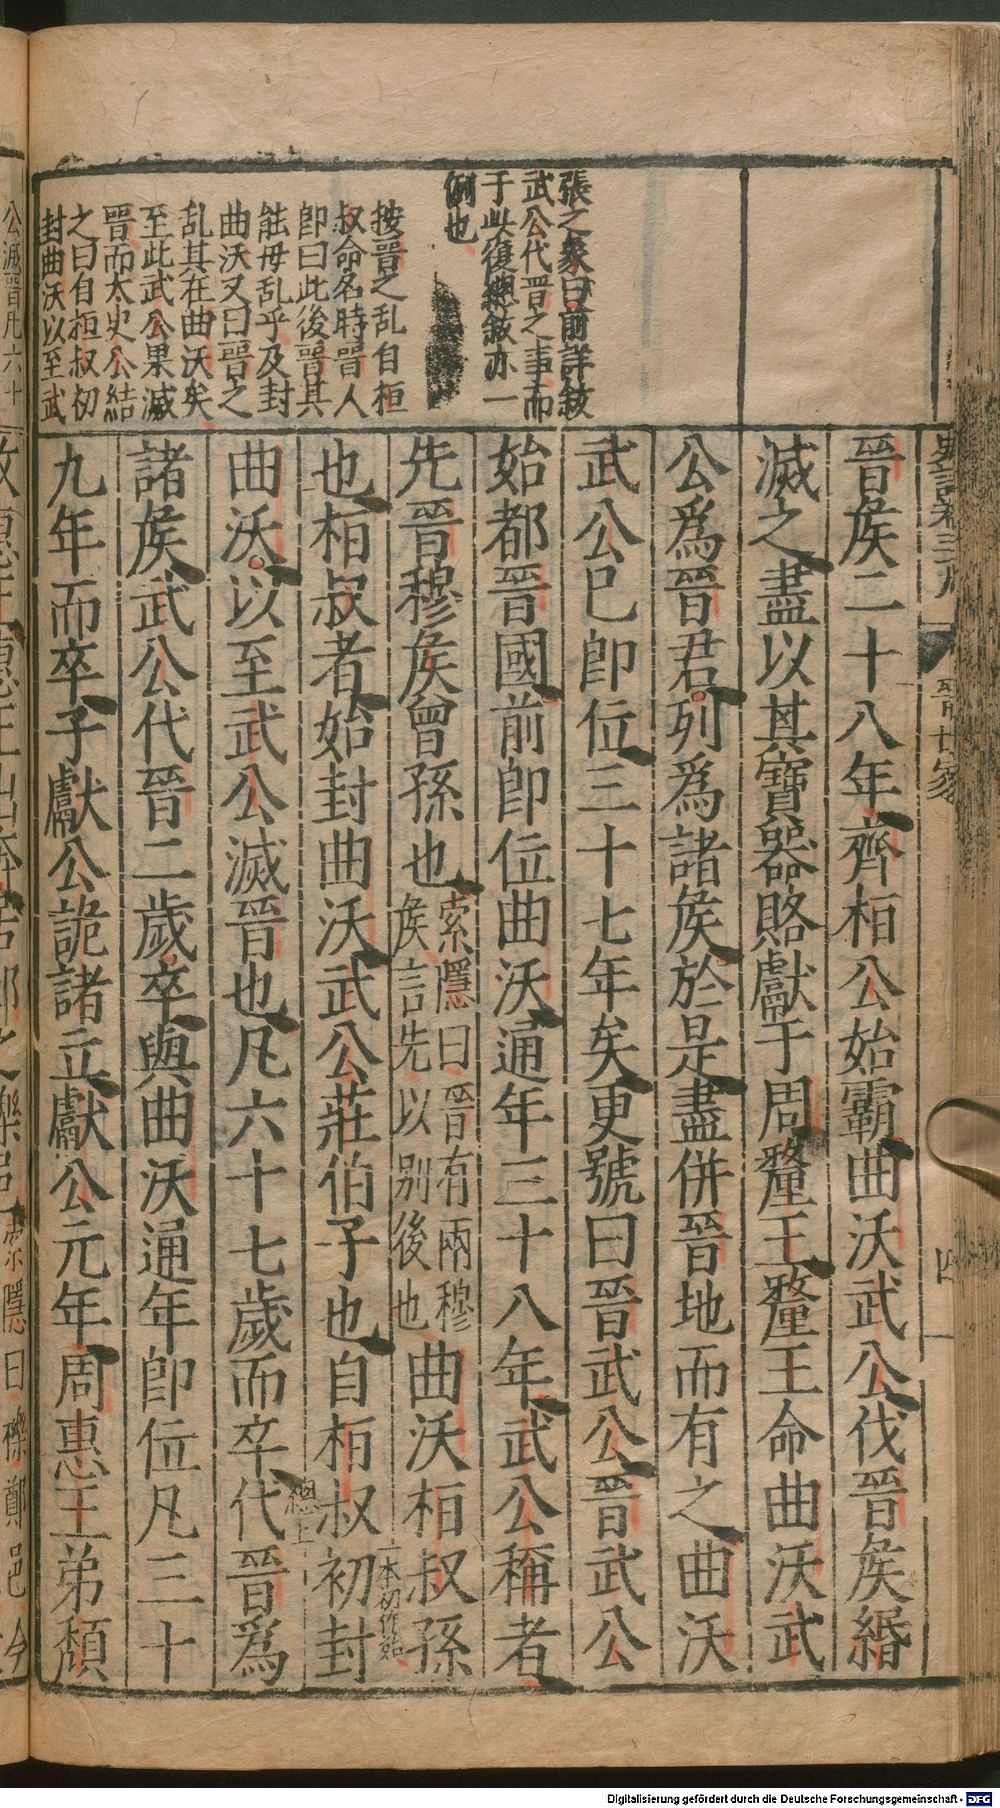 史記卷三九
晉世家
四
張之象曰前詳敘
武公代晉之事而
于此復總敘亦一
例也
按晉之乱自桓
叔命名時晉人
卽曰此後晉其
能毋乱乎及封
曲沃又曰晉之
乱其在曲沃矣
至此武公果滅
晉而太史公結
之曰自桓叔初
封曲沃以至武
晉矦二十八年齊桓公始霸曲沃武公伐晉矦緡
滅之盡以其寶器賂獻于周釐王釐王命曲沃武
公爲晉君列爲諸矦於是盡併晉地而有之曲沃
武公已卽位三十七年矣更號曰晉武公晉武公
始都晉國前卽位曲沃通年三十八年武公稱者
先晉穆矦曾孫也
索隱曰晉有兩穆
矦言先以别後也
曲沃桓叔孫
也桓叔者始封曲沃武公莊伯子也自桓叔初封
一本初作始
曲沃以至武公滅晉也凡六十七歲而卒代晉爲
總上
諸矦武公代晉二歲卒與曲沃通年卽位凡三十
九年而卒子獻公詭諸立獻公元年周惠王弟頹
公滅晉凡六十
索隱曰櫟鄭邑今
Digitalisierung gefördert durch die Deutsche Forschungsgemeinschaft - DFG